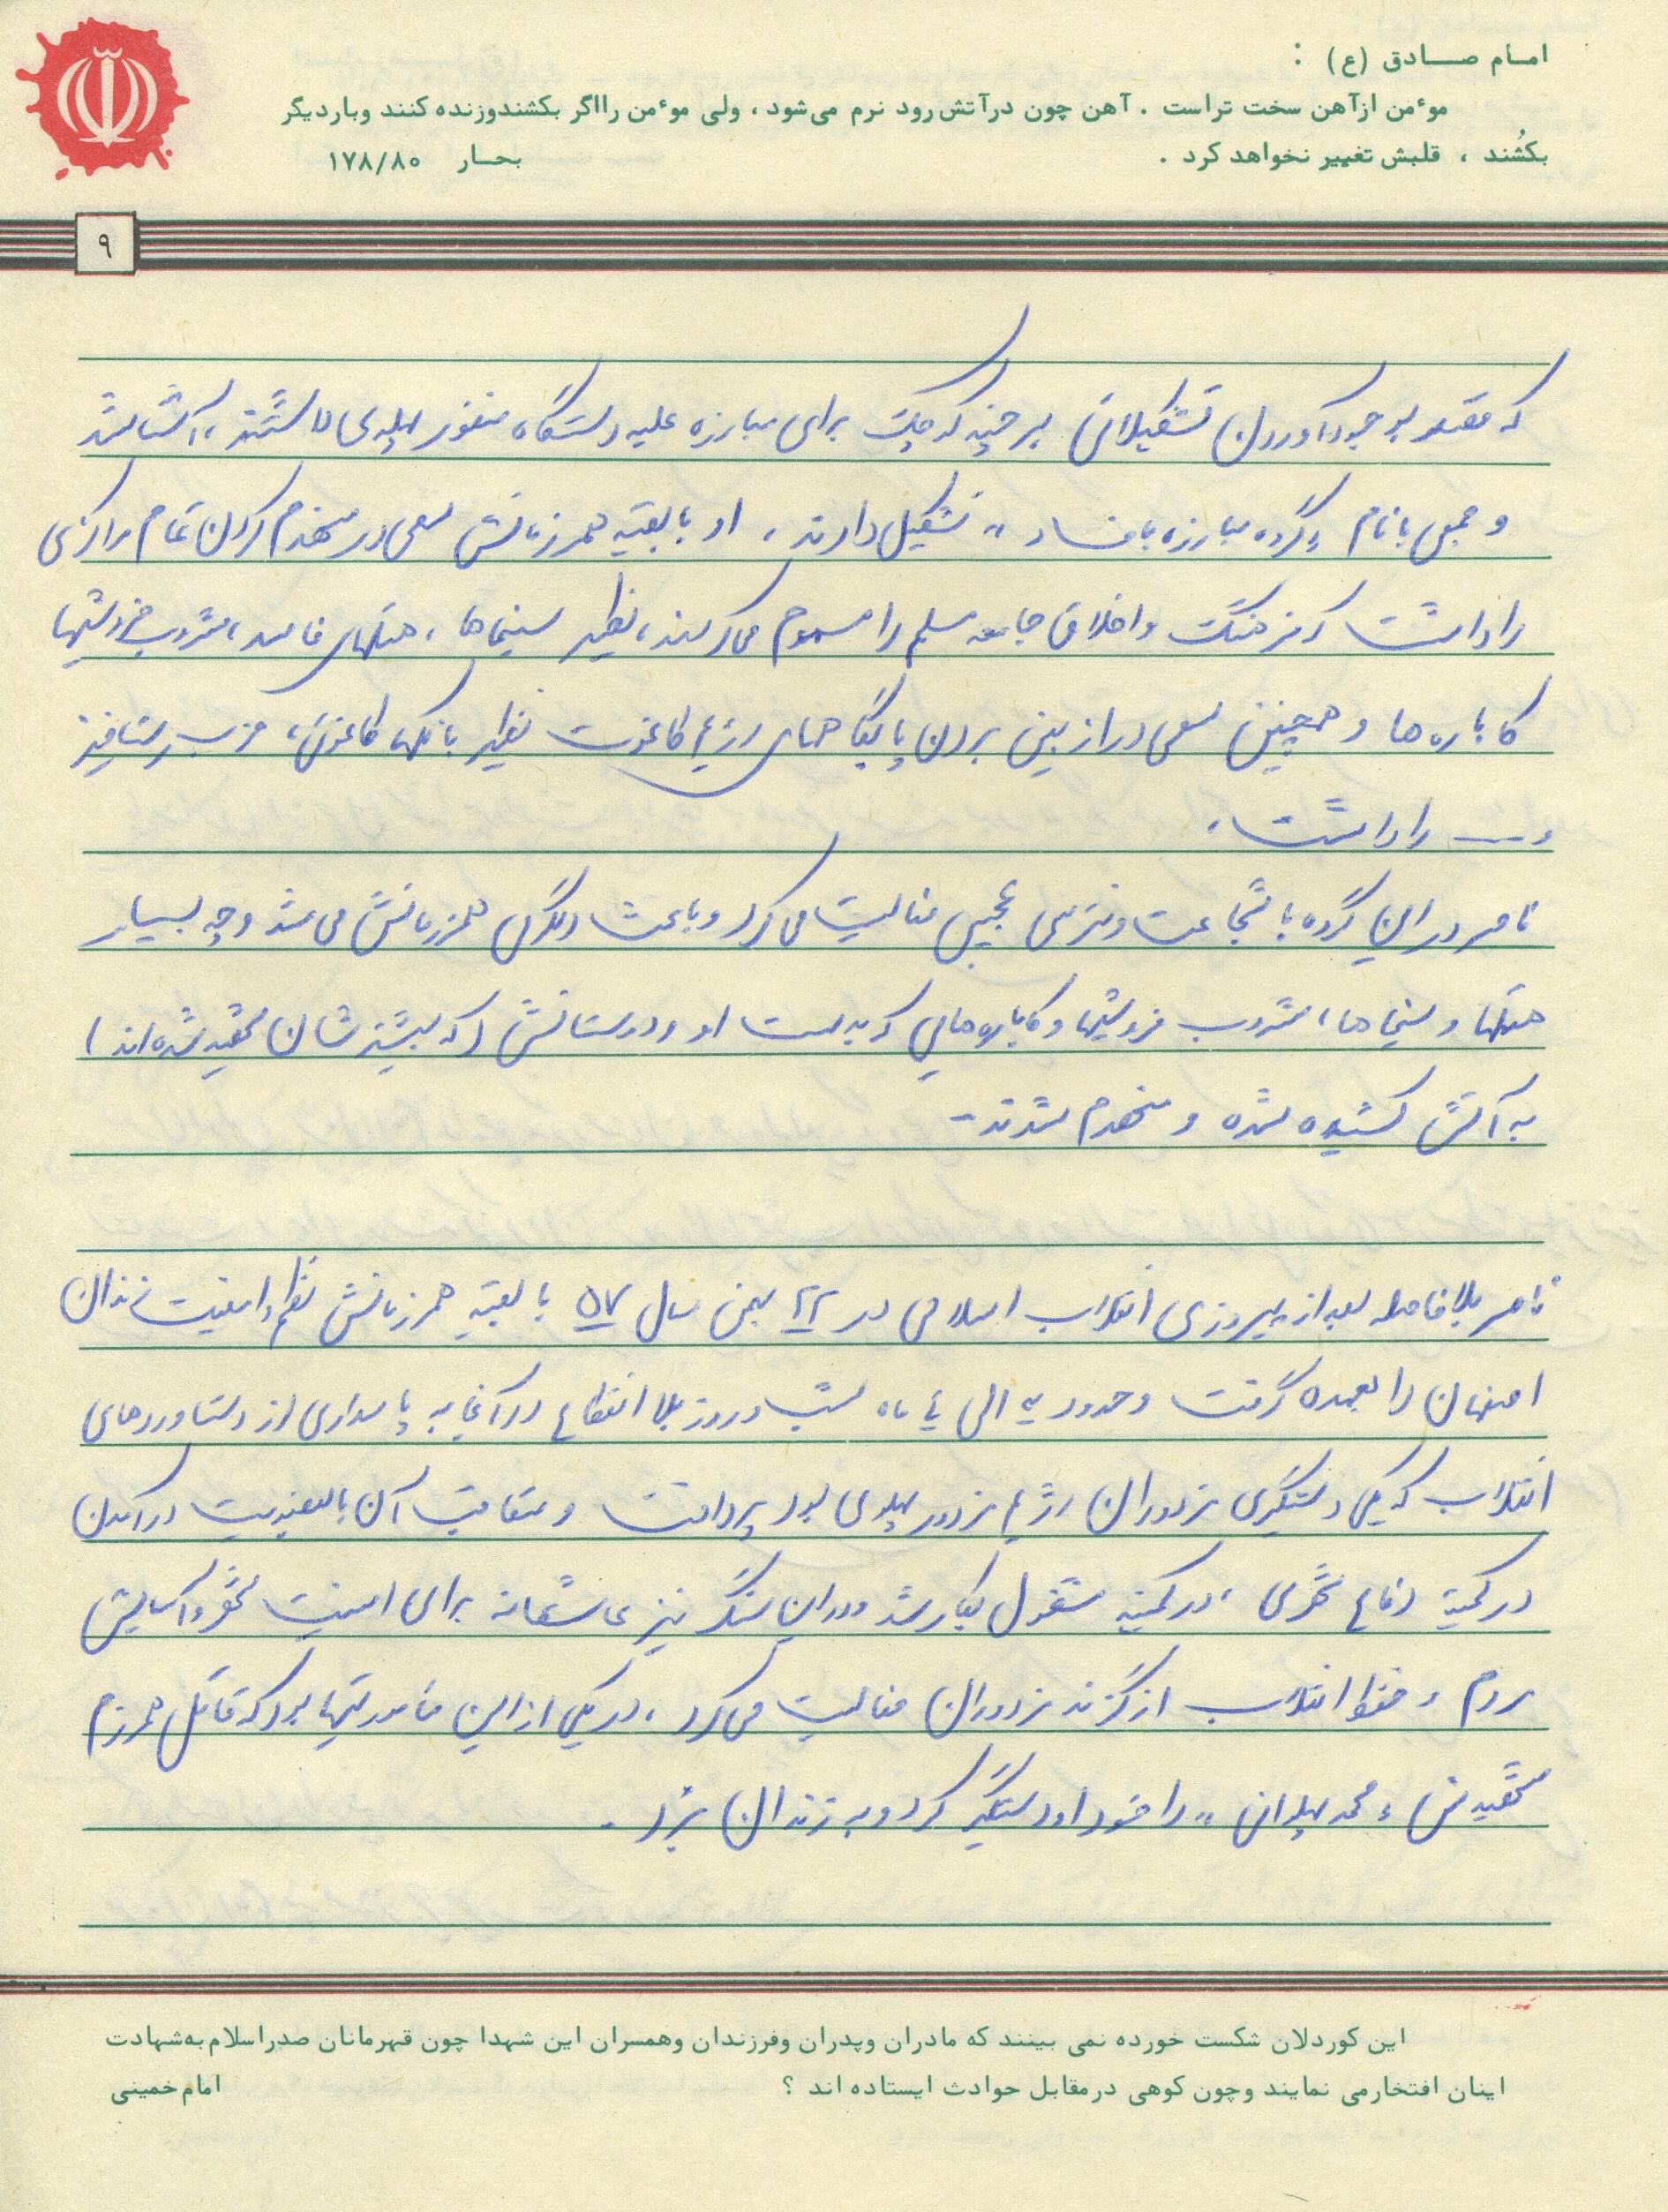 امام صادق (ع) :
موءمن ازآهن سخت تراست . آهن چون درآتش رود نرم می‌شود ، ولی موءمن رااگر بکشندوزنده کنند وباردیگر
بکُشند ، قلبش تغییر نخواهد کرد .
بحار ۱۷۸/۸۰
۹
که قصد بوجود آوردن تشکیلاتی هر چند کوچک برای مبارزه علیه دستگاه منفور پهلوی داشتند، آشنا شد
و جمعی با نام «گروه مبارزه با فساد» تشکیل دادند، او با بقیه همرزمانش سعی در منهدم کردن تمام مراکزی
را داشت که فرهنگ و اخلاق جامعه مسلم را مسموم می‌کردند، نظیر سینماها، هتلهای فاسد، مشروب فروشیها
کاباره‌ها و همچنین سعی در از بین بردن پایگاههای رژیم طاغوت نظیر بانکهای طاغوتی، حزب رستاخیز
و ... را داشت.
ناصر در این گروه با شجاعت و نترسی عجیبی فعالیت می‌کرد و باعث دلگرمی همرزمانش می‌شد و چه بسیار
هتلها و سینماها، مشروب فروشیها و کاباره‌هایی که بدست او و دوستانش (که بیشترشان شهید شده‌اند)
به آتش کشیده شده و منهدم شدند-
ناصر بلافاصله بعد از پیروزی انقلاب اسلامی در ۲۲ بهمن سال ۵۷ با بقیه همرزمانش نظم و امنیت زندان
اصفهان را بعهده گرفت و حدود ۳ الی ۴ ماه شب و روز بلا انقطاع در آنجا به پاسداری از دستاوردهای
انقلاب که یکی دستگیری مزدوران رژیم مزدور پهلوی بود پرداخت و متعاقب آن با بعضویت درآمدن
در کمیته دفاع شهری، در کمیته مشغول بکار شد و در این سنگر نیز عاشقانه برای امنیت شهر و آسایش
مردم و حفظ انقلاب از گزند مزدوران فعالیت می‌کرد، در یکی از این مأموریتها بود که قاتل همرزم
شهیدش «محمد پهلوانی» را خود او دستگیر کرد و به زندان برد.
این کوردلان شکست خورده نمی بینند که مادران وپدران وفرزندان وهمسران این شهدا چون قهرمانان صدراسلام به‌شهادت
اینان افتخارمی نمایند وچون کوهی درمقابل حوادث ایستاده اند ؟
امام خمینی